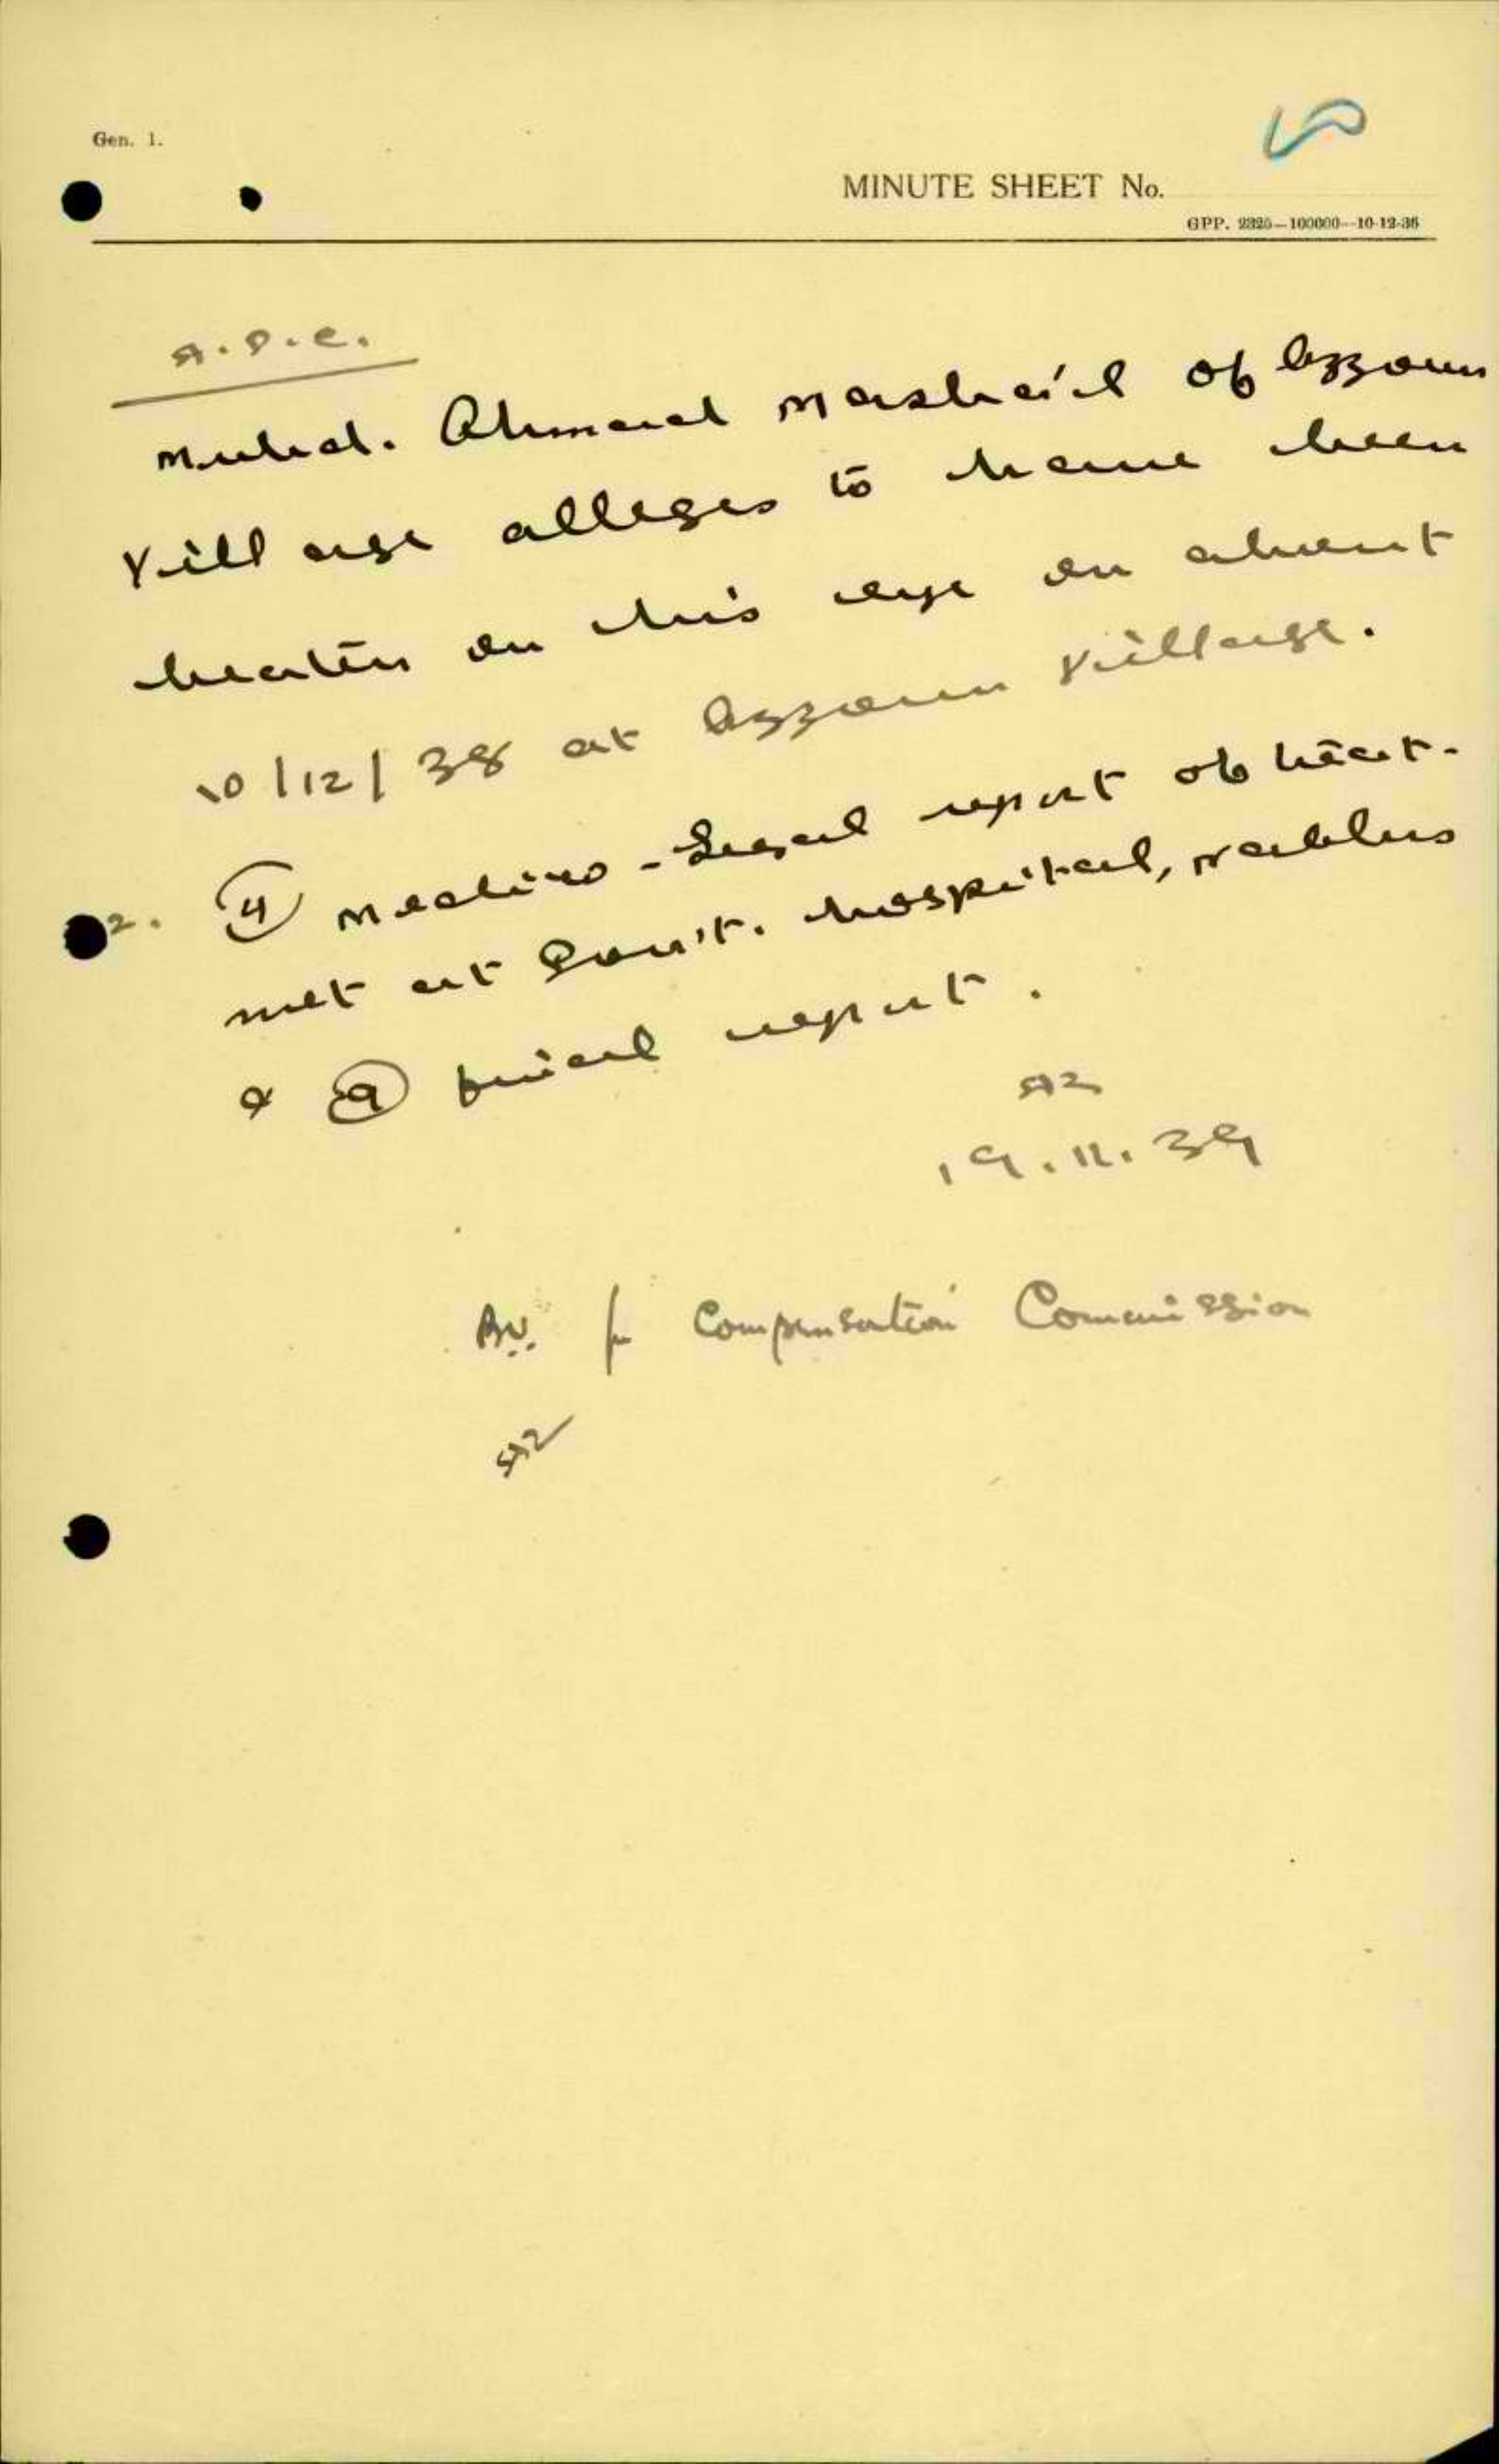 Gen. 1.
MINUTE SHEET No.
GPP. 2325—100000—10-12-36
A.D.C.
Muhd. Ahmad Mashail of Azzoun
Village alleges to have been
beaten on his eye on about
10/12/38 at Azzoun Village.
2. (4) Medico-Legal report of
met at Govt. hospital, Nablus
& (9) final report.
19.11.39
for Compensation Commission